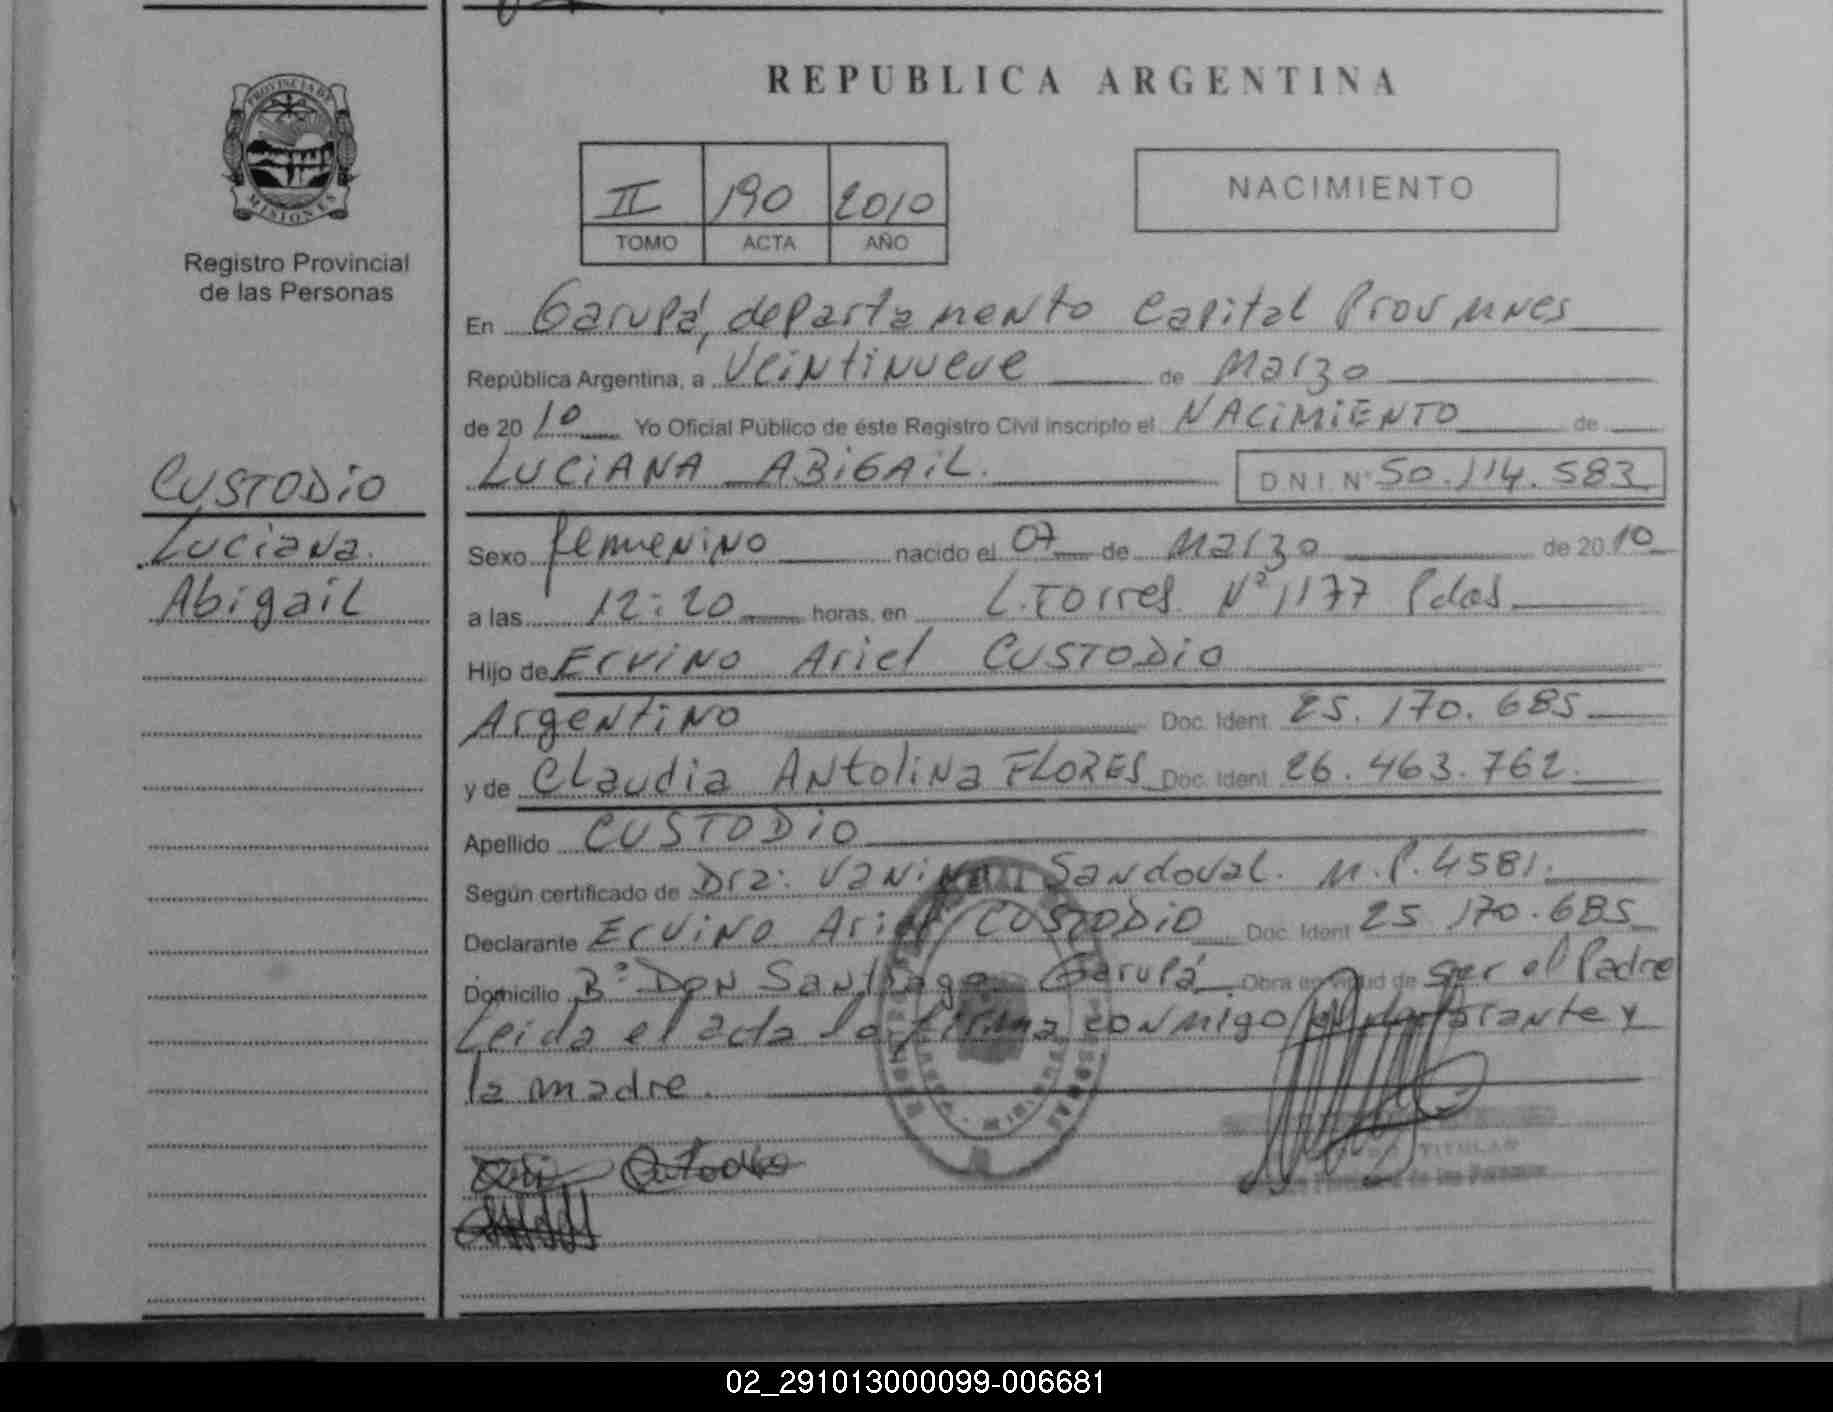 REPUBLICA ARGENTINA
PROVINCIA DE
MISIONES
Registro Provincial
de las Personas
II 190 2010
TOMO ACTA AÑO
NACIMIENTO
En Garupá, departamento Capital Prov Mnes
República Argentina, a Veintinueve de Marzo
de 2010 Yo Oficial Público de éste Registro Civil inscripto el NACIMIENTO de
LUCIANA ABIGAIL. D.N.I. Nº 50.114.583
CUSTODIO
Luciana.
Abigail
Sexo femenino nacido el 07 de Marzo de 2010
a las 12:20 horas, en L. Torres Nº 1177 Pdas
Hijo de Ervino Ariel CUSTODIO
Argentino Doc. Ident. 25.170.685
y de Claudia Antolina FLORES Doc. Ident. 26.463.762.
Apellido CUSTODIO
Según certificado de Dra: Vanina Sandoval. M.P. 4581.
Declarante Ervino Ariel CUSTODIO Doc. Ident 25.170.685
Domicilio Bº Don Santiago Garupá Obra en virtud de ser el Padre
Leida el acta la firma conmigo el declarante y
la madre.
TITULAR
de las Personas
02_291013000099-006681